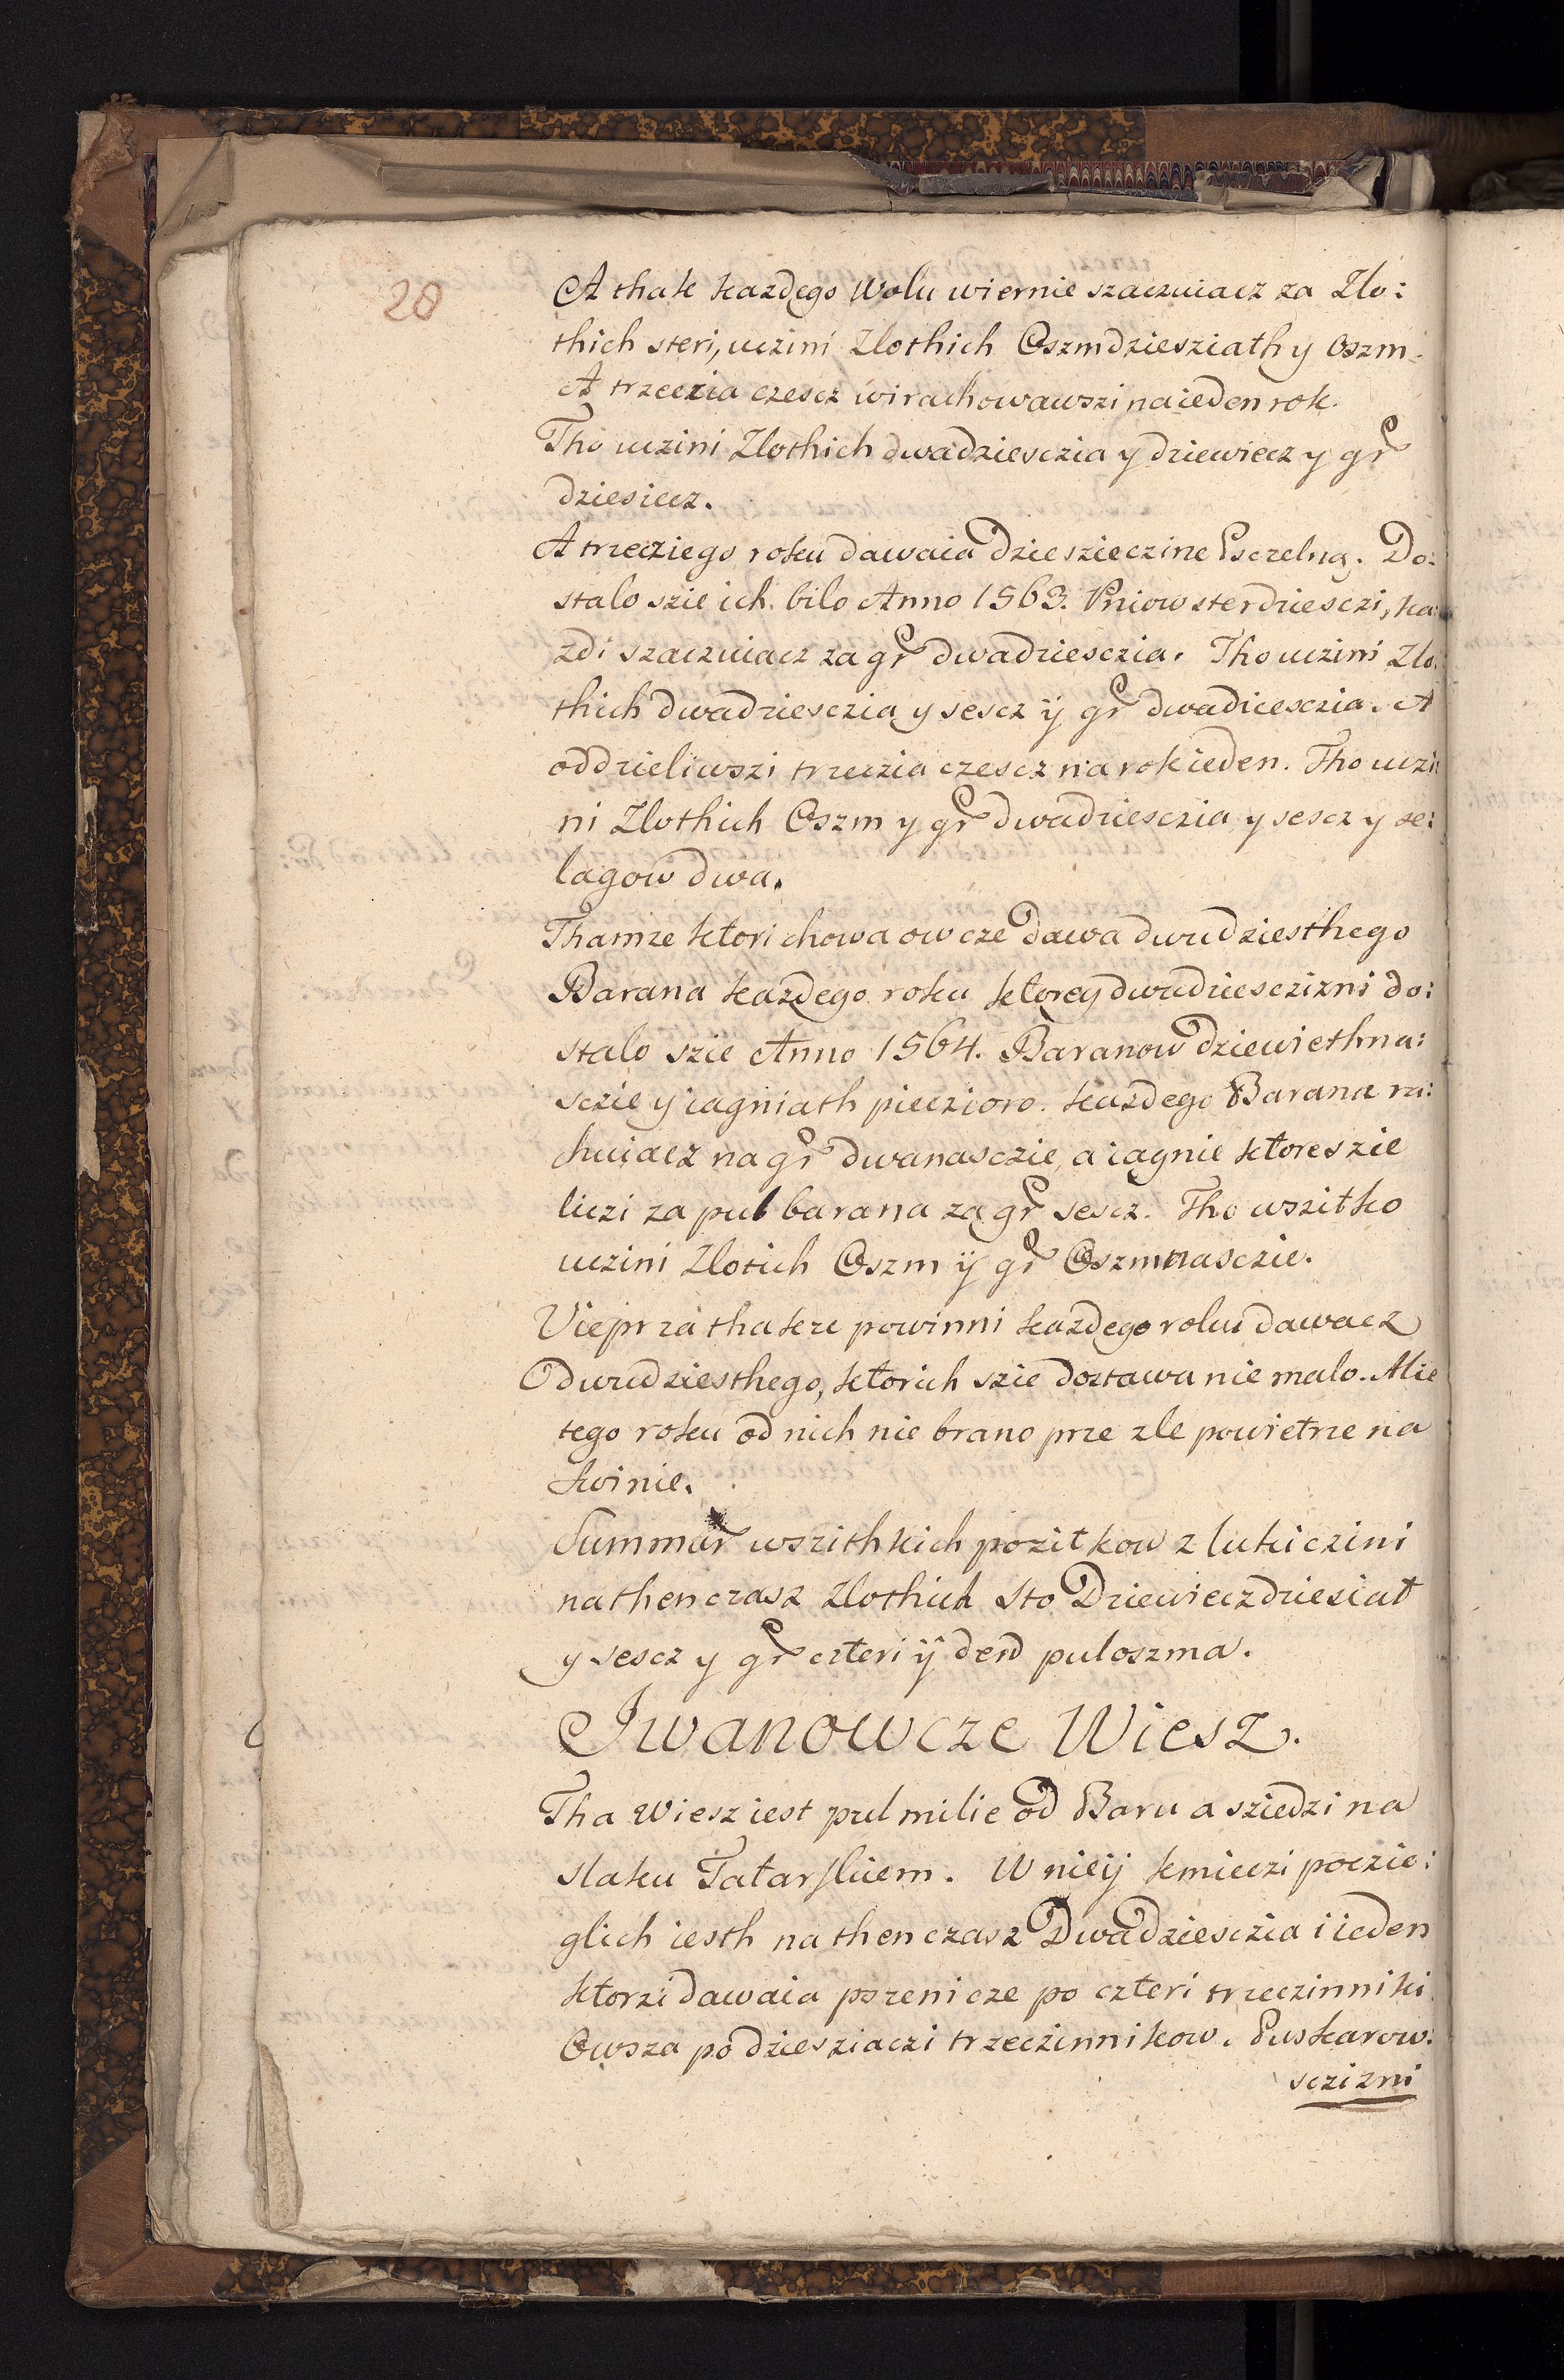 28
A thak kazdego Wolu wiernie szaczuiacz za Zlo:
thich steri, uczini Zlothich Oszmdziesziath y Oszm.
A trzeczia czescz wirachowawszi na ieden rok.
Tho uczini Zlothich dwadziesczia y dziewiecz y gr
dziesiecz.
A trzecziego roku dawaia dzieszieczine Psczelną. Do:
stalo szie ich bilo Anno 1563. Pniow sterdziesczi, ka:
zdi szaczuiacz za gr dwadziesczia. Tho uczini Zlo:
thich dwadziesczia y sescz ÿ gr dwadiesczia. A
oddzieliwszi trzeczia czescz na rok ieden. Tho uczi
ni Zlothich Oszm y gr dwadziesczia y sescz y se:
lagow dwa.
Thamze ktori chowa owcze dawa dwudziesthego
Barana kazdego roku ktorey dwudziesczizni do:
stalo szie Anno 1564. Baranow dziewiethna:
sczie y iagniath pieczioro. kazdego Barana ra:
chuiacz na gr dwanasczie, a iagnie ktore szie
liczi za pul barana za gr sescz. Tho wszitko
uczini Zlotich Oszm ÿ gr Oszmnasczie.
Vieprza thakze powinni kazdego roku dawacz
Odwudziesthego, ktorich szie dostawa nie malo. Alie
tego roku od nich nie brano prze zle powietrze na
swinie.
Summar wszithkich pozitkow z luki czini
na then czasz Zlothich sto Dziewieczdziesiat
y sescz y gr czteri ÿ den puloszma.
Iwanowcze Wiesz.
Tha Wiesz iest pul milie od Baru a sziedzi na
slaku Tatarskiem. W nieÿ kmieczi poczie:
glich iesth na then czasz Dwadziesczia i ieden
ktorzi dawaia pszenicze po czteri trzeczinniki
Owsza po dziesziaczi trzeczinnikow. Puskarow:
sczizni